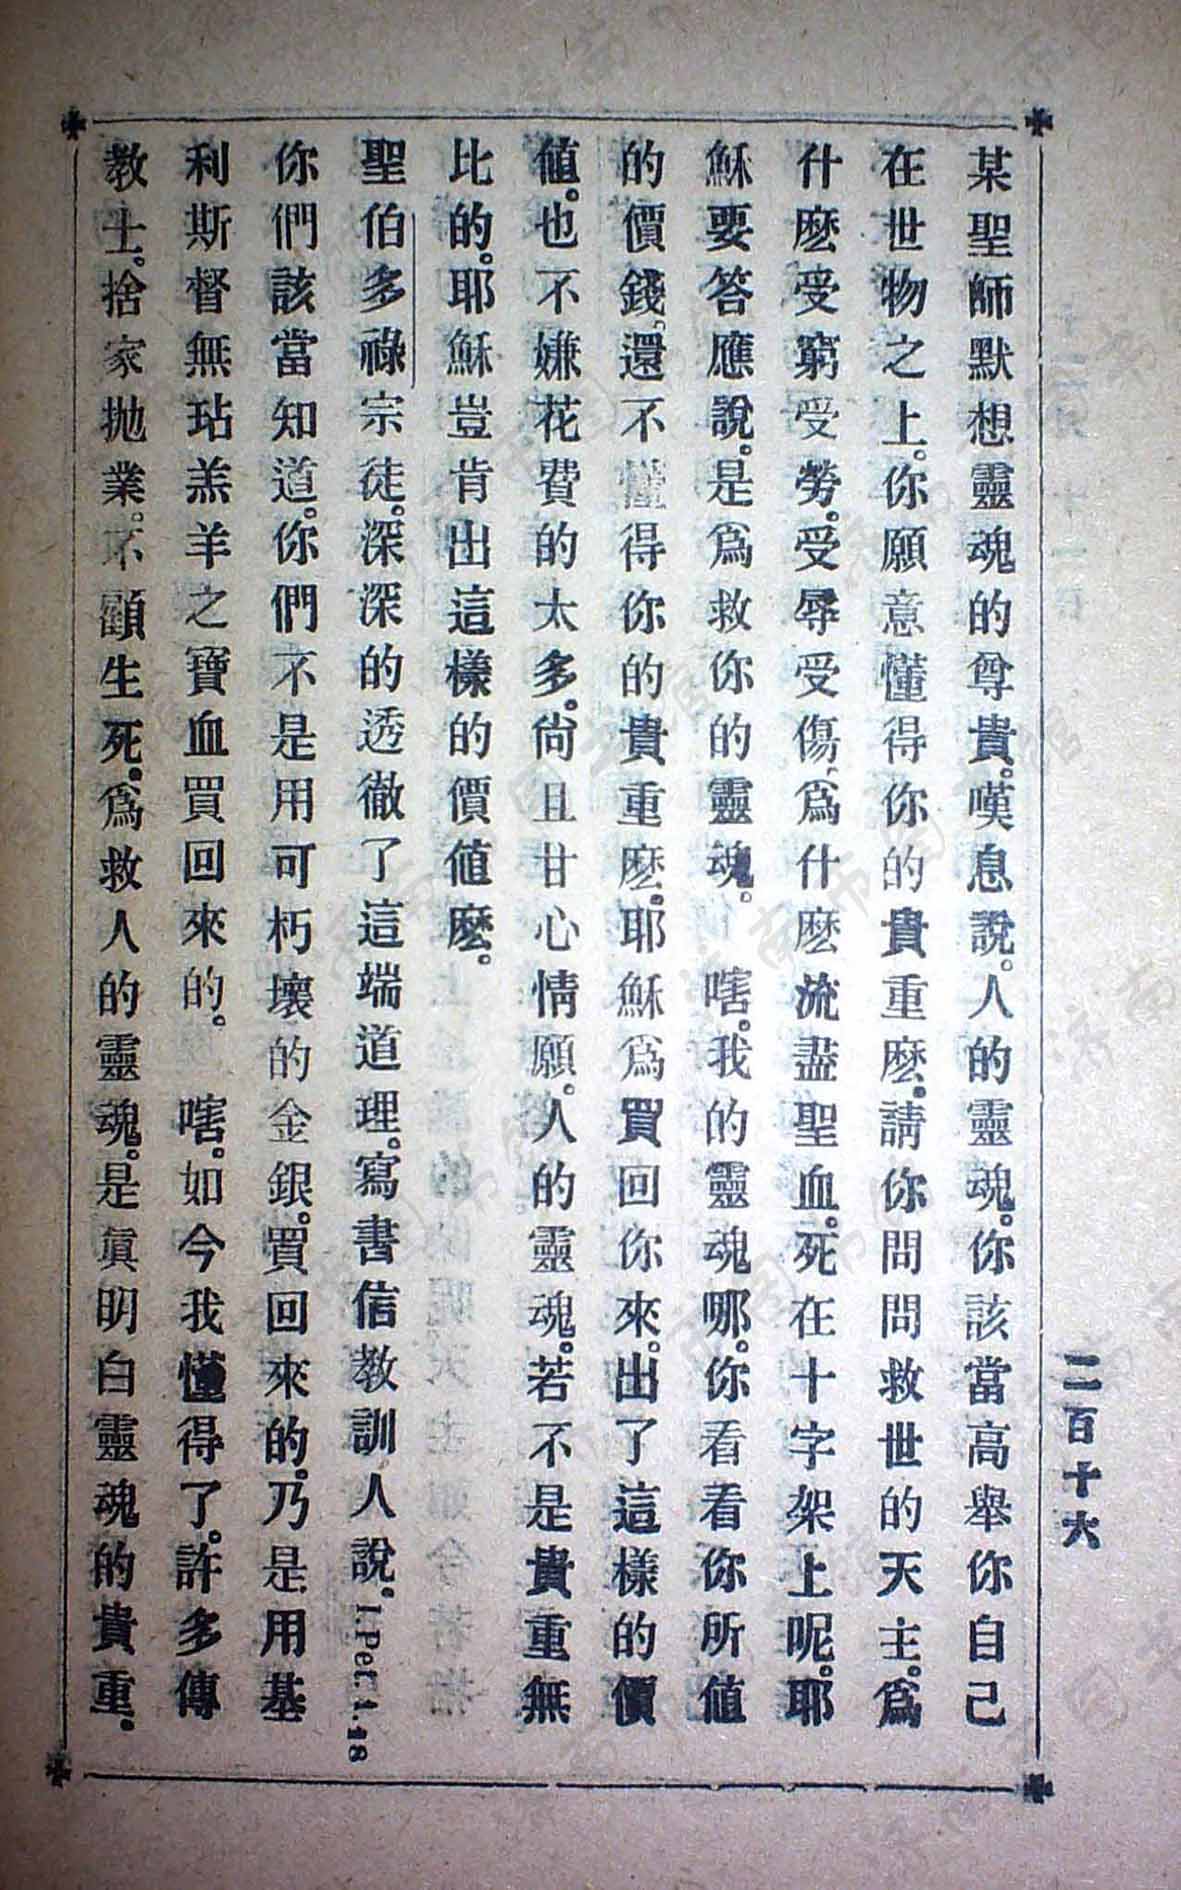 二百十六
某聖師默想靈魂的尊貴。嘆息說。人的靈魂。你該當高舉你自己
在世物之上。你願意懂得你的貴重麽。請你問問救世的天主。爲
什麽受窮受勞。受辱受傷。爲什麽流盡聖血。死在十字架上呢。耶
穌要答應說。是爲救你的靈魂。 嗐。我的靈魂哪。你看看你所值
的價錢。還不懂得你的貴重麽。耶穌爲買回你來。出了這樣的價
值。也不嫌花費的太多。尙且甘心情願。人的靈魂。若不是貴重無
比的。耶穌豈肯出這樣的價值麽。
聖伯多祿宗徒。深深的透徹了這端道理。寫書信教訓人說。I.Pet.1.18
你們該當知道。你們不是用可朽壞的金銀。買回來的。乃是用基
利斯督無玷羔羊之寶血買回來的。 嗐。如今我懂得了。許多傳
教士。捨家拋業。不顧生死。爲救人的靈魂。是眞明白靈魂的貴重。